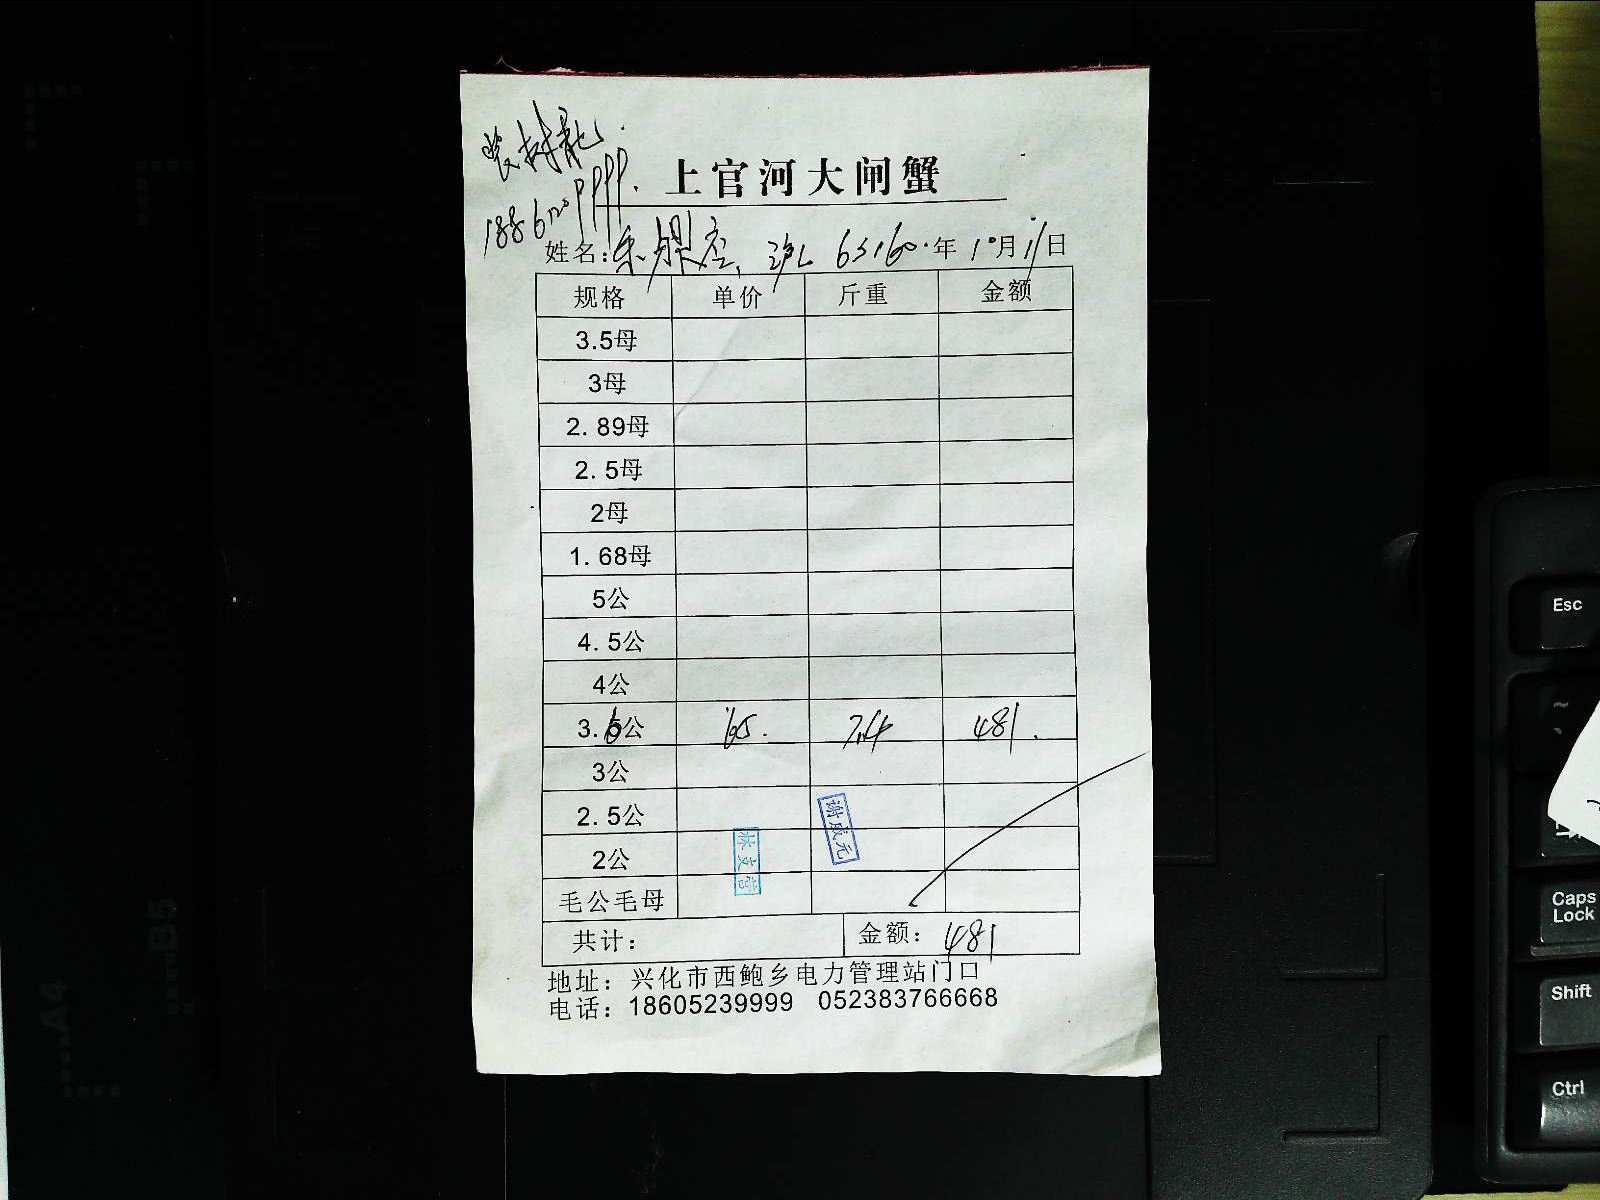 188612099999.
上官河大闸蟹
姓名: 沪L 63160. 年 10月11日
规格 单价 斤重 金额
3.5母
3母
2.89母
2.5母
2母
1.68母
5公
4.5公
4公
3.6公 65. 7.4 481.
3公
2.5公
2公
毛公毛母
谢成元
共计: 金额: 481
地址: 兴化市西鲍乡电力管理站门口
电话: 18605239999 052383766668
Esc
Caps Lock
Shift
Ctrl
A4
B5